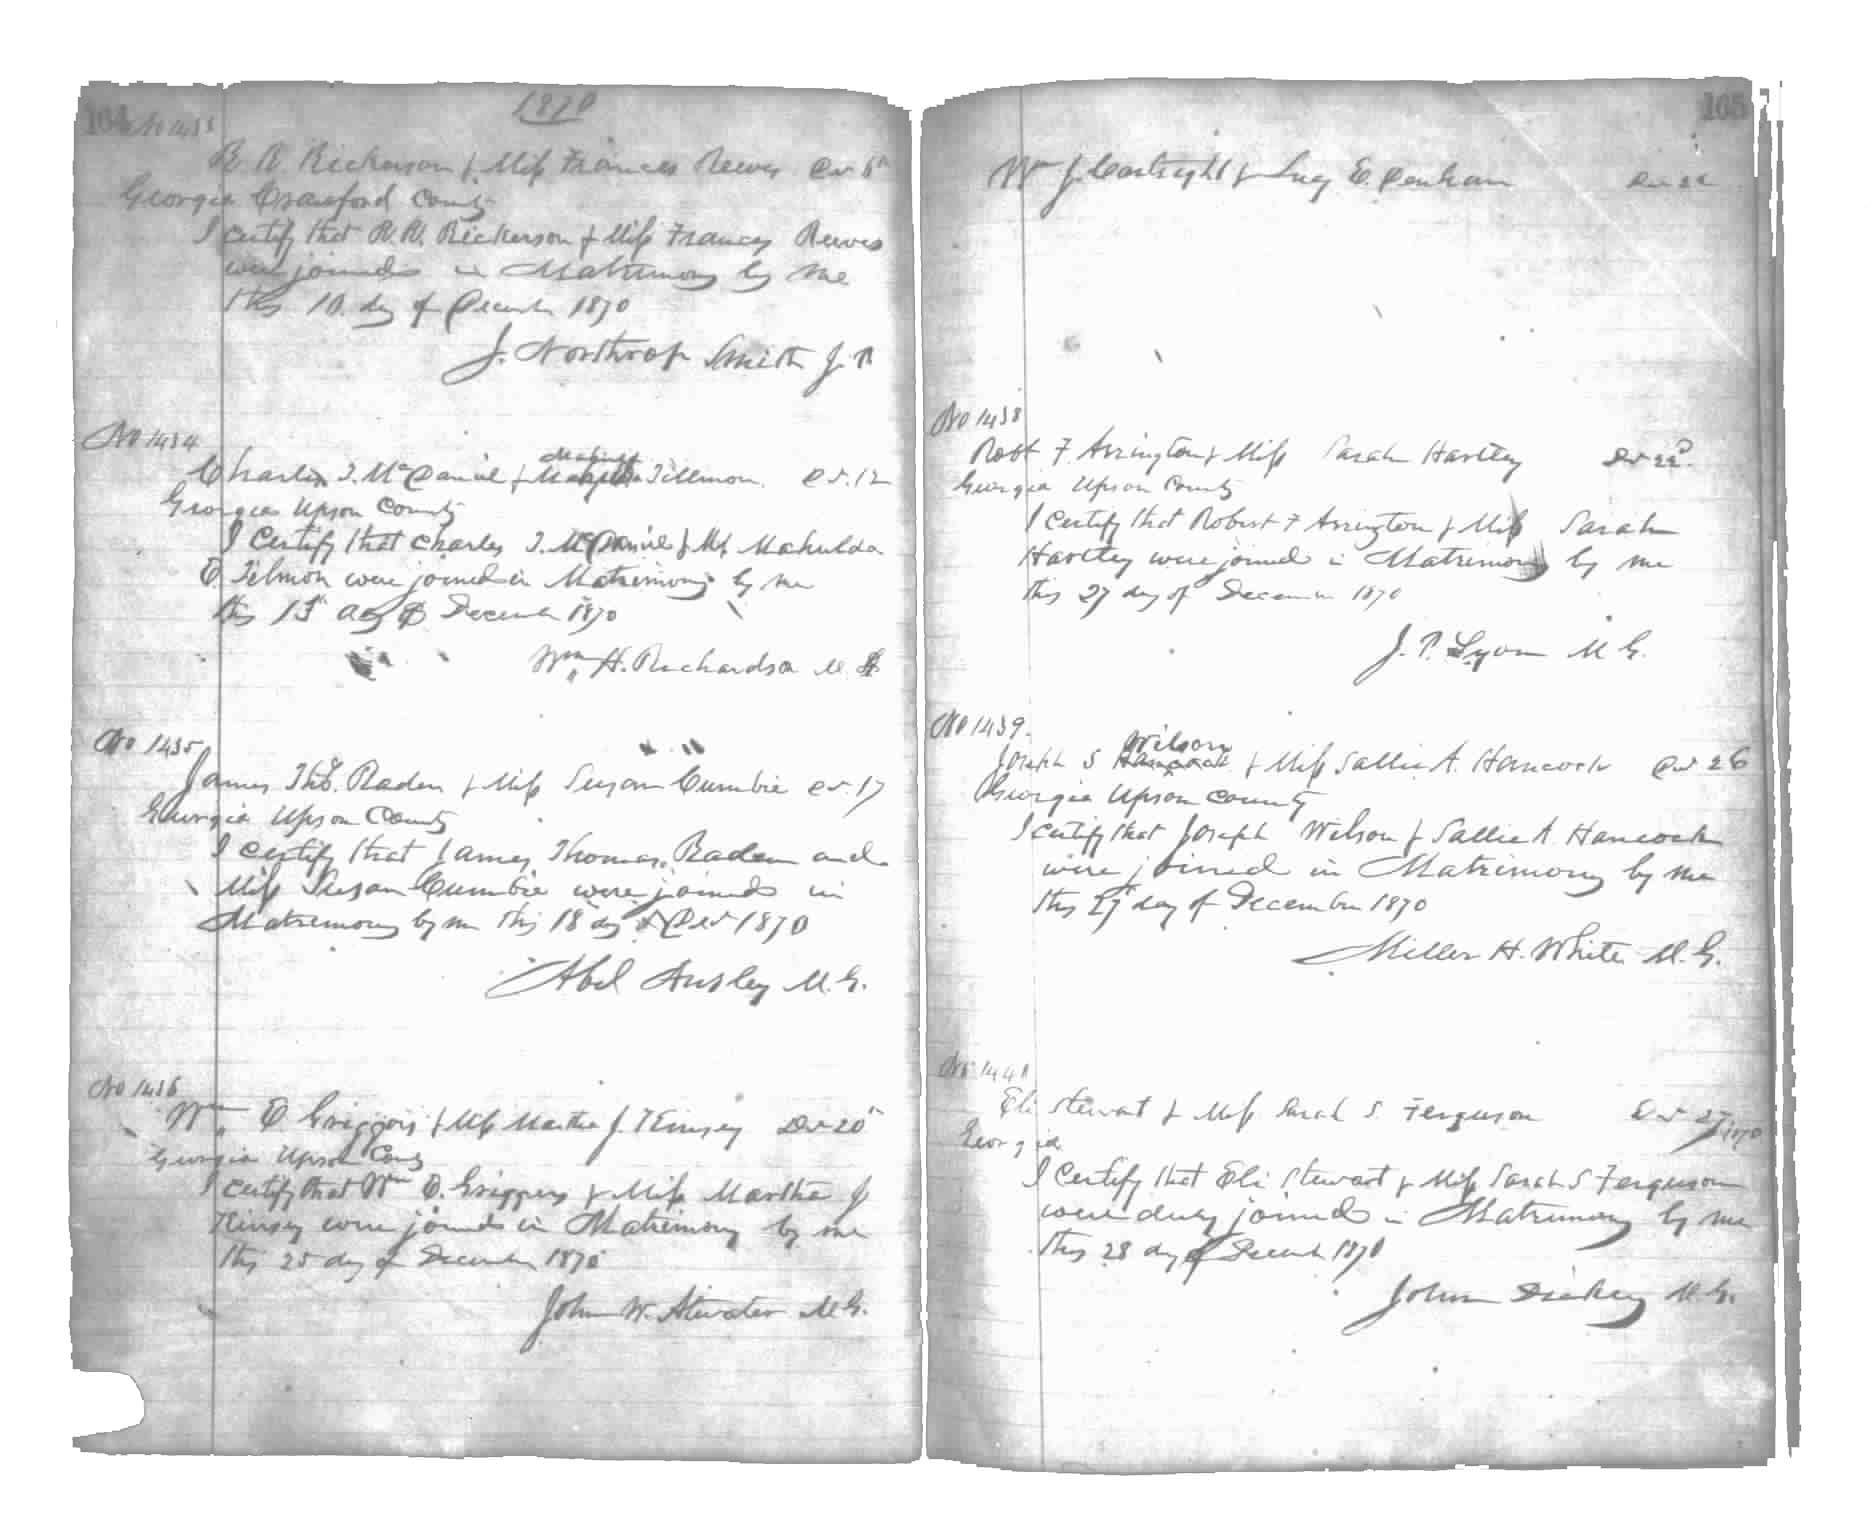 1870
164 No 1433
R. R. Rickerson & Miss Frances Reeves Dec 6th
Georgia Crawford County
I certify that R. R. Rickerson & Miss Frances Reeves
were joined in Matrimony by me
this 10 day of December 1870
J. Northrop Smith J. P
No 1434
Charles T. McDaniel & Tillmon Dec. 12
Georgia Upson County
I Certify that Charles T. McDaniel & Ms Mahulda
E. Tilmon were joined in Matrimony by me
this 15th day of December 1870
Wm H. Richardson M. G.
No 1435
James Thos. Raden & Miss Susan Cumbie Dec. 17
Georgia Upson County
I certify that James Thomas Raden and
Miss Susan Cumbie were joined in
Matrimony by me this 18 day of Dec 1870
Abel Ansley M. G.
No 1436
Wm E Griggers & Miss Martha J. Kinsey Dec 20th
Georgia Upson County
I certify that Wm E. Griggers & Miss Martha J
Kinsey were joined in Matrimony by me
this 25 day of December 1870
John W. Atwater M G.
165
Wm J. Cartright & Lucy E. Denham Dec 22
No 1438
Robt F. Arrington & Miss Sarah Hartley Dec 22d
Georgia Upson County
I Certify that Robert F Arrington & Miss Sarah
Hartley were joined in Matrimony by me
this 27 day of December 1870
J. P. Lyon M G.
No 1439
Wilson
Joseph S Hancock & Miss Sallie A. Hancock Dec 26
Georgia Upson County
I certify that Joseph Wilson & Sallie A. Hancock
were joined in Matrimony by me
this 27 day of December 1870
Miller H. White M. G.
No 1440
Eli Stewart & Miss Sarah S. Ferguson Dec 27 1870
Georgia
I Certify that Eli Stewart & Miss Sarah S Ferguson
were duly joined in Matrimony by me
this 28 day of Decemb 1870
John Dickey M. G.